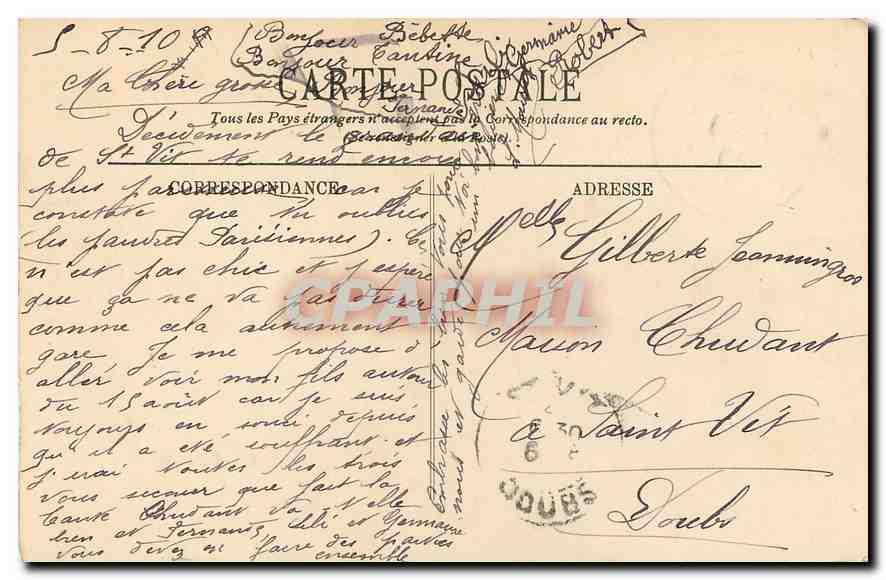 5-8-10
Bonjour Bébette
Bonjour Tantine
Bonjour
Fernande
Lili
Germaine
Robert
CARTE POSTALE
Tous les Pays étrangers n'acceptent pas la Correspondance au recto.
(Se renseigner à la Poste).
CORRESPONDANCE
ADRESSE
Ma Chère grosse
Décidement le
de St Vit te rend encore
plus car je
constate que tu oublies
(les pauvres Parisiennes). Ce
n'est pas chic et j'espère
que ça ne va pas durer
comme cela autrement
gare Je me propose d'
aller voir mon fils autour
du 15 août car je suis
toujours en souci depuis
qu'il a été souffrant et
j'irai toutes les trois
vous secouer que fait la
tante Chudant va-t-elle
bien et Fernande, Lili et Germaine
vous devez en faire des parties
ensemble
Embrasse les tous pour
nous et garde pour toi
Melle Gilberte Jeanningros
Maison Chudant
à Saint Vit
Doubs
DOUBS
CPAPHIL